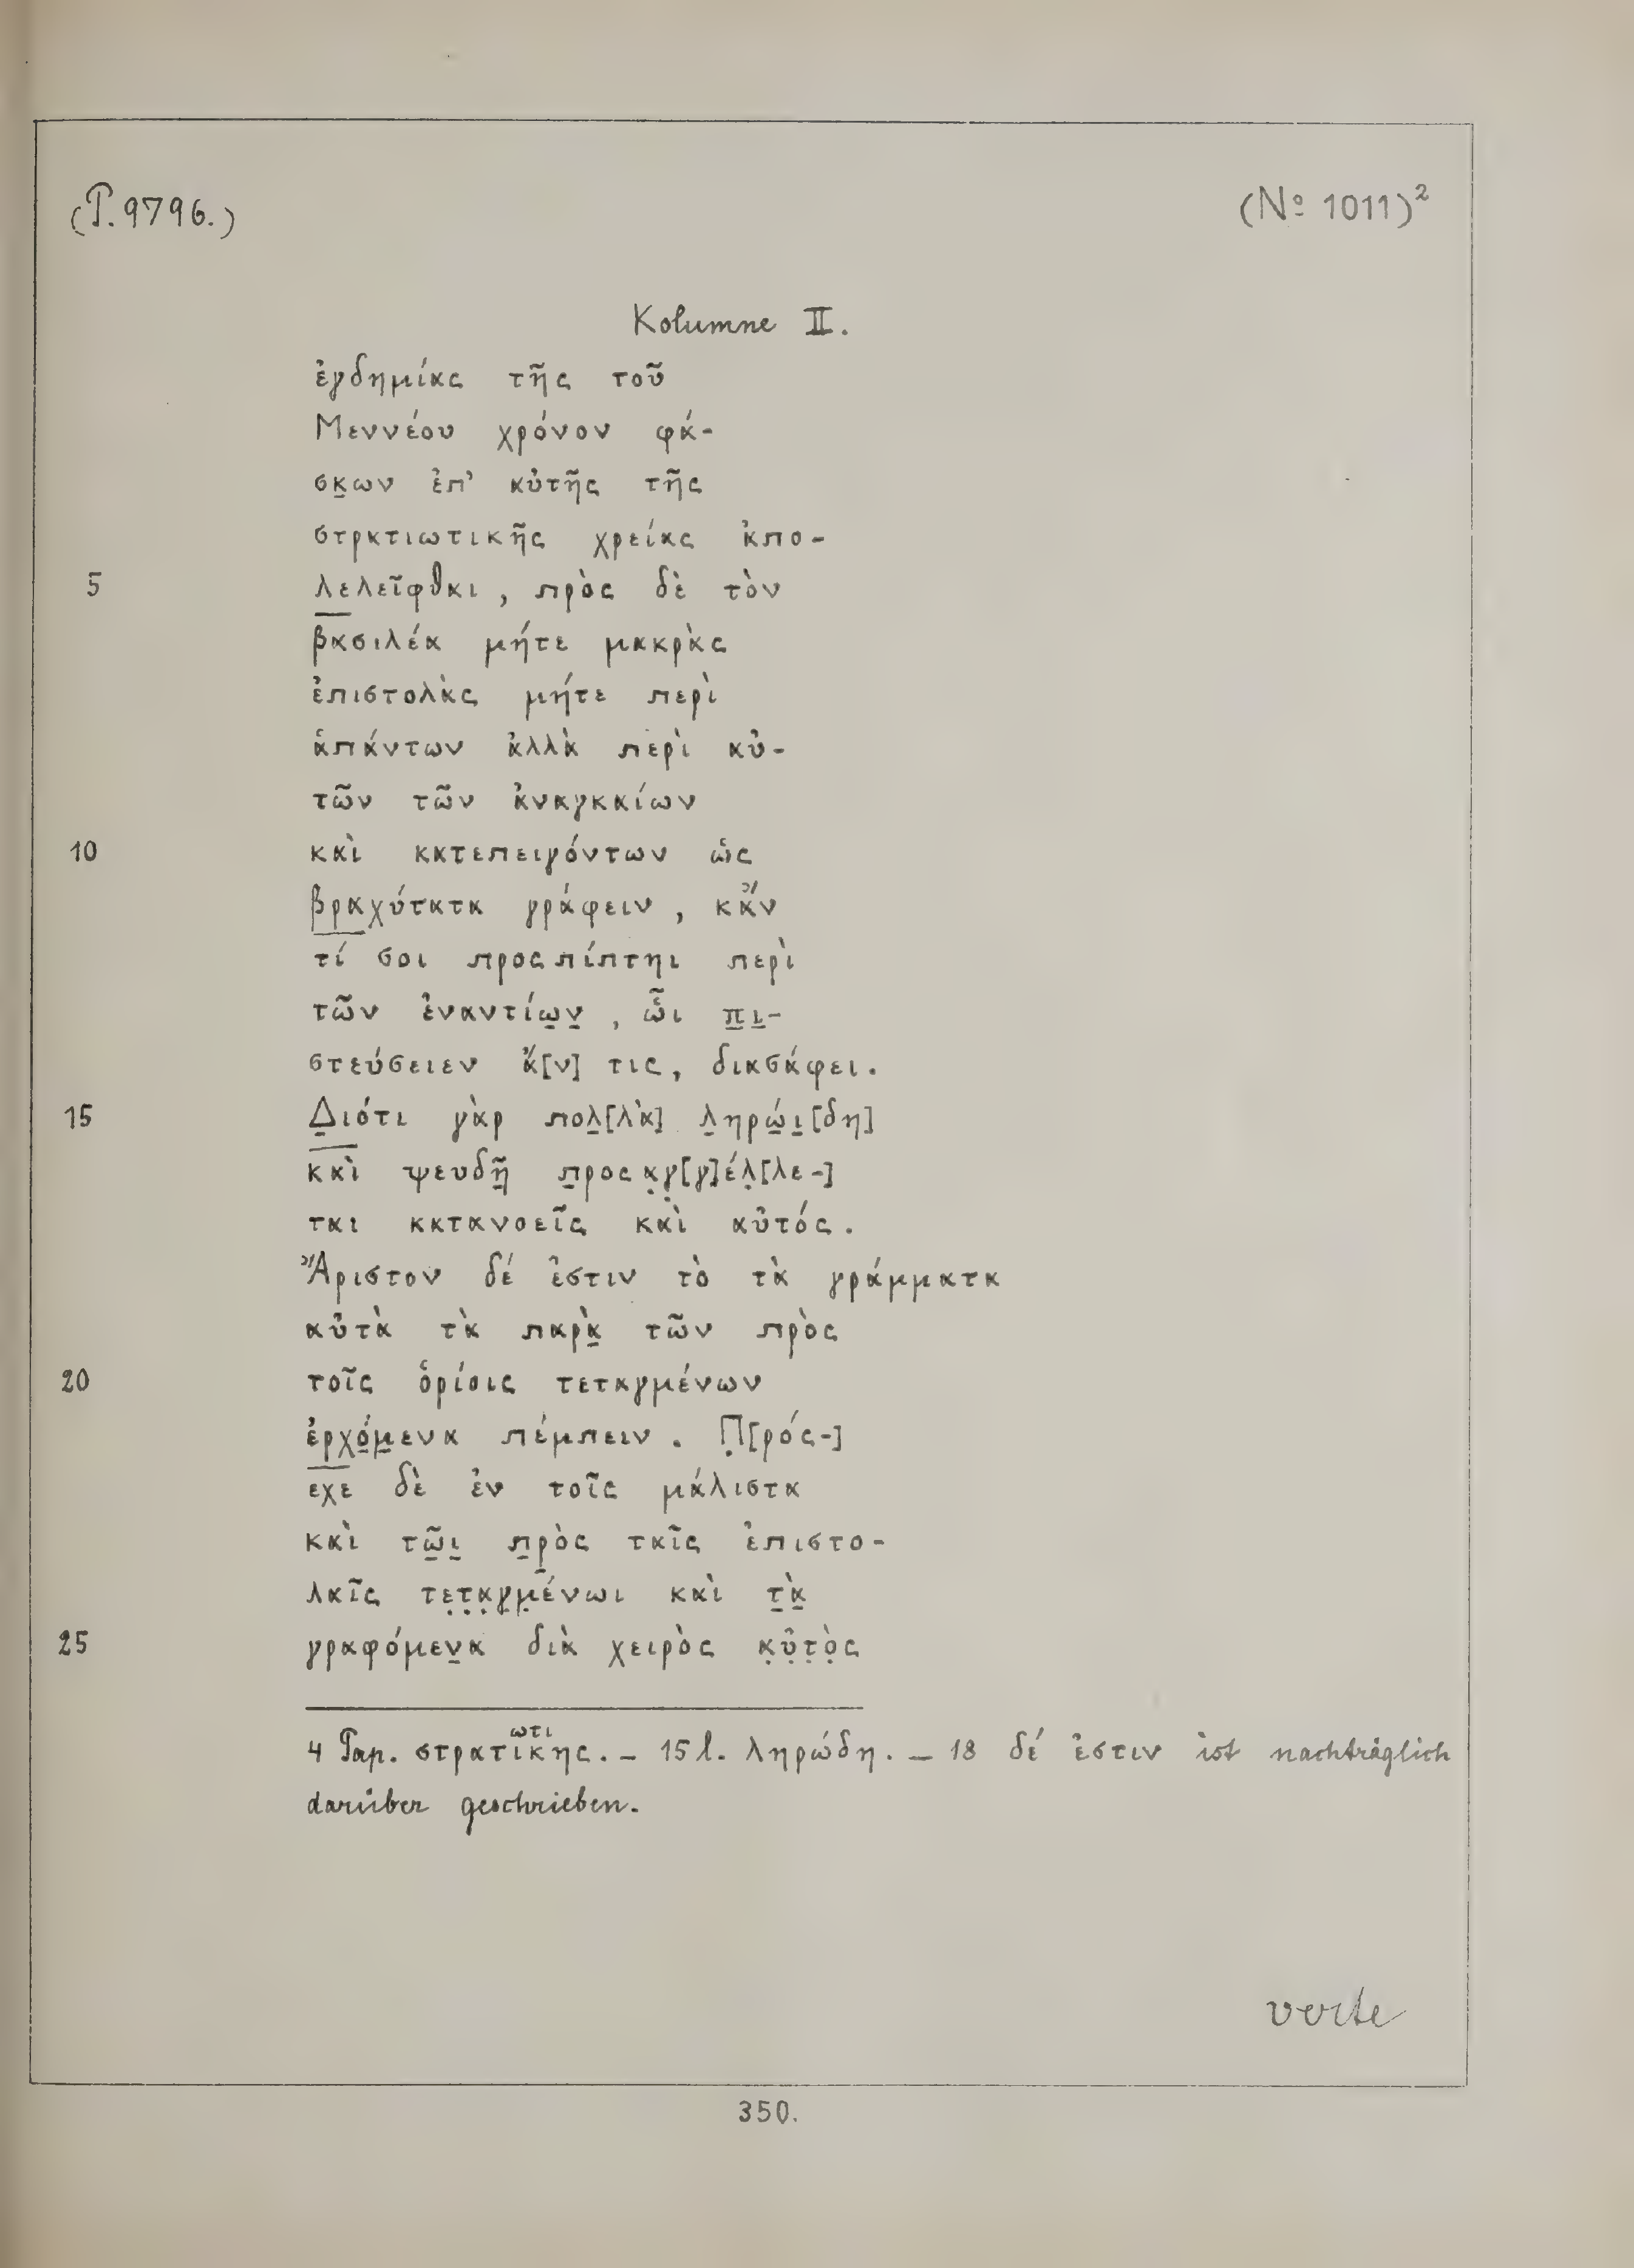 (P. 9796.)
(No 1011)²
Kolumne II.
ἐγδημίας τῆς τοῦ
Μεννέου χρόνον φά-
σκ̣ων ἐπ' αὐτῆς τῆς
στρατιωτικῆς χρείας ἀπο-
5 λελεῖφθαι, πρὸς δὲ τὸν
βασιλέα μήτε μακρὰς
ἐπιστολὰς μήτε περὶ
ἁπάντων ἀλλὰ περὶ αὐ-
τῶν τῶν ἀναγκαίων
10 καὶ κατεπειγόντων ὡς
βραχύτατα γράφειν, κἄν
τί σοι προσπίπτηι περὶ
τῶν ἐναντίω̣ν̣, ὧι π̣ι̣-
στεύσειεν ἄ[ν] τις, διασάφει.
15 Δ̣ιότι γὰρ πολ̣[λὰ] λ̣ηρώ̣ι̣[δη]
καὶ ψευδῆ̣ π̣ροσα̣γ̣[γ]έλ̣[λε-]
ται κατανοεῖς καὶ αὐτός.
Ἄριστον δέ ἐστιν τὸ τὰ γράμματα
αὐτὰ τὰ παρὰ̣ τῶν πρὸς
20 τοῖς ὁρίοις τεταγμένων
ἐρχό̣μ̣ενα πέμπειν. Π̣[ρόσ-]
εχε δὲ ἐν τοῖς μάλιστα
καὶ τῶ̣ι̣ π̣ρ̣ὸς ταῖς ἐπιστο-
λαῖς τε̣τ̣α̣γ̣μ̣ένωι καὶ τ̣ὰ̣
25 γραφόμεν̣α διὰ χειρὸς α̣ὐ̣τ̣ὸ̣ς
4 Pap. στρατὶκης. ωτι – 15 l. ληρώδη. – 18 δέ ἐστιν ist nachträglich
darüber geschrieben.
verte
350.